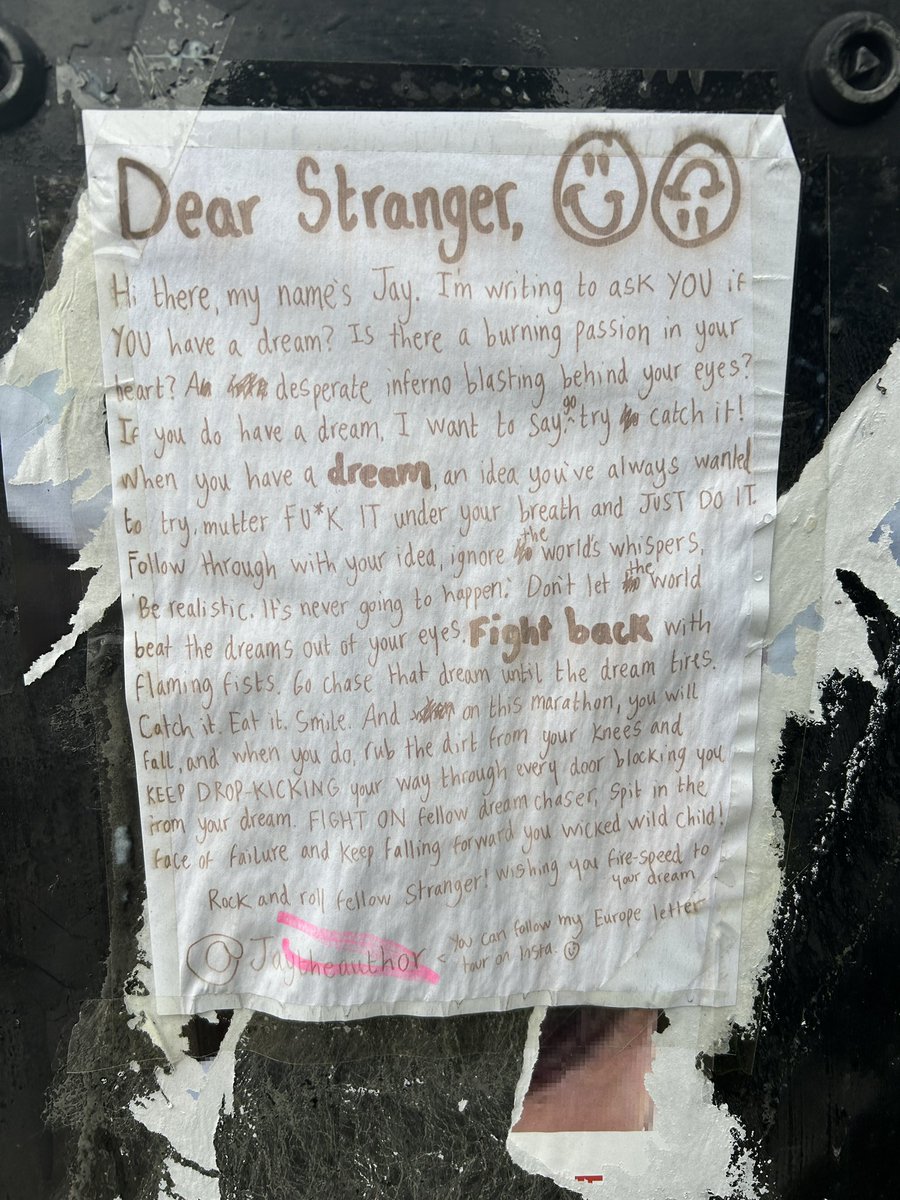 Dear Stranger,
Hi there, my name's Jay. I'm writing to ask YOU if
YOU have a dream? Is there a burning passion in your
heart? A desperate inferno blasting behind your eyes?
If you do have a dream, I want to say: go try catch it!
When you have a dream, an idea you've always wanted
to try, mutter FU*K IT under your breath and JUST DO IT.
Follow through with your idea, ignore the world's whispers,
'Be realistic. It's never going to happen.' Don't let the world
beat the dreams out of your eyes. Fight back with
flaming fists. Go chase that dream until the dream tires.
Catch it. Eat it. Smile. And on this marathon, you will
fall, and when you do, rub the dirt from your knees and
KEEP DROP-KICKING your way through every door blocking you
from your dream. FIGHT ON fellow dream chaser, spit in the
face of failure and keep falling forward you wicked wild child!
Rock and roll fellow Stranger! Wishing you fire-speed to
your dream
@Jaytheauthor < You can follow my Europe letter
tour on Insta.